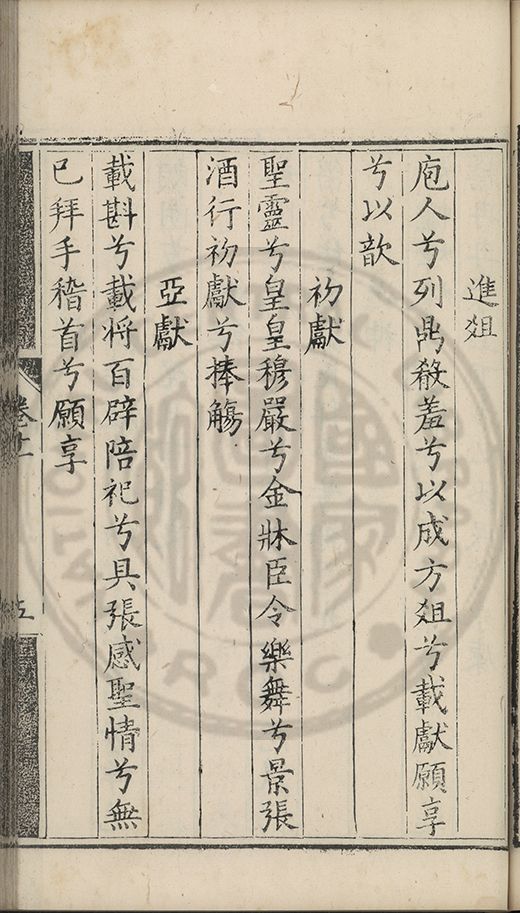 進爼
庖人兮列鼎殽羞兮以成方爼兮載獻願享
兮以歆
初獻
聖靈兮皇皇穆嚴兮金牀臣令樂舞兮景張
酒行初獻兮捧觴
亞獻
載斟兮載将百辟陪祀兮具張感聖情兮無
已拜手稽首兮願享
卷十一
五